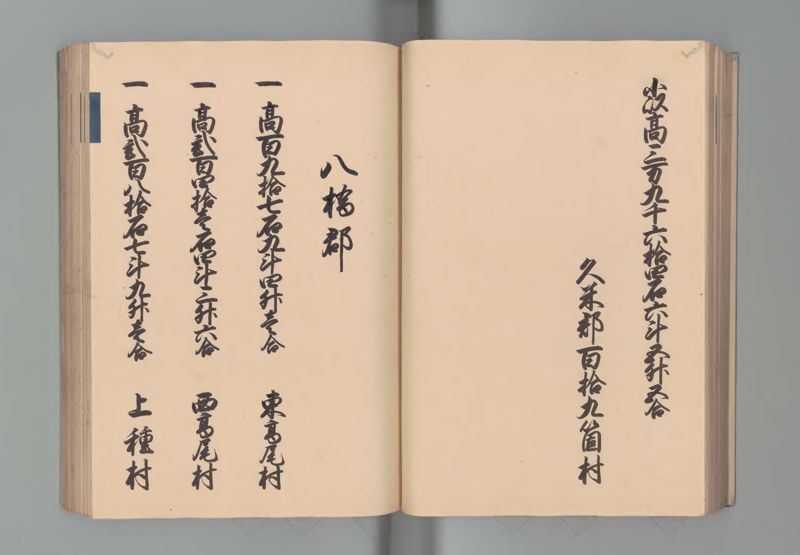 小以高三万九千六拾四石六斗五升五合
久米郡百拾九箇村
八橋郡
一高百九拾七石九斗四升壱合 東高尾村
一高弐百四拾壱石四斗三升六合 西高尾村
一高弐百八拾石七斗九升壱合 上種村